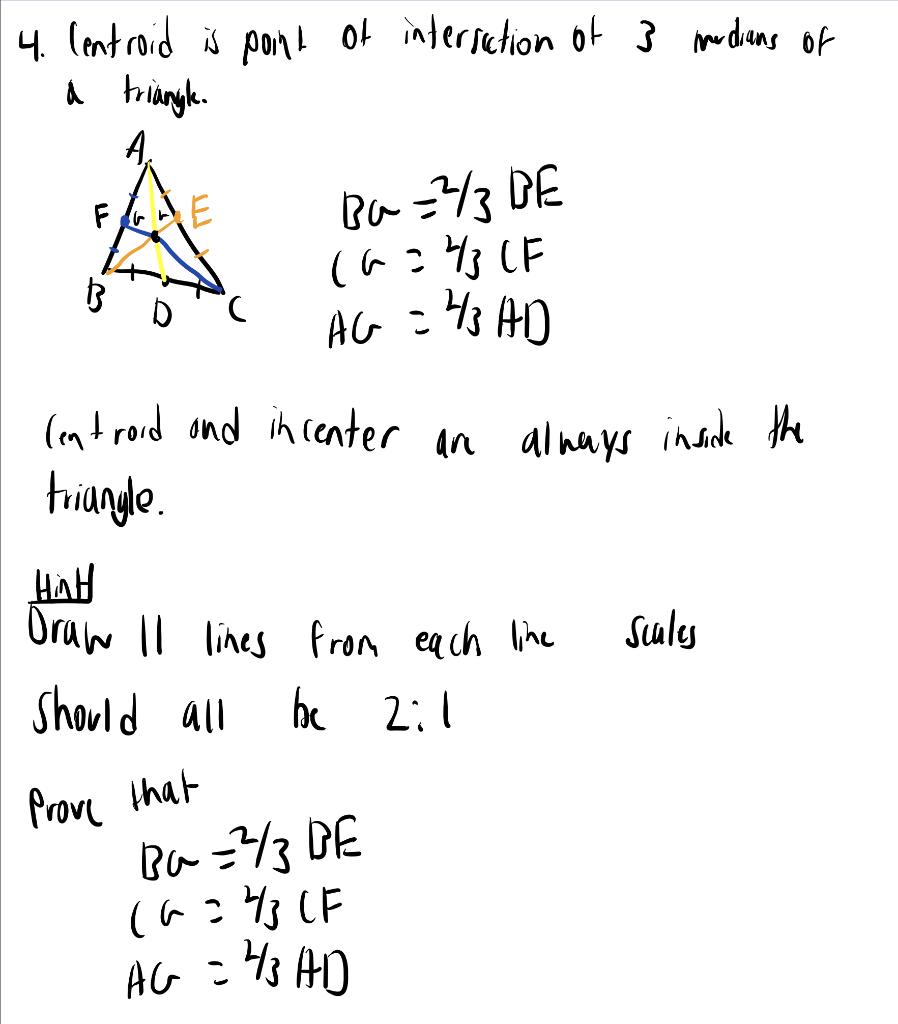 4. Centroid is point of intersection of 3 medians of
a triangle.
A
F G E
B D C
BG = 2/3 BE
CG = 2/3 CF
AG = 2/3 AD
Centroid and incenter are always inside the
triangle.
Hint
Draw || lines from each line scales
should all be 2:1
Prove that
BG = 2/3 BE
CG = 2/3 CF
AG = 2/3 AD